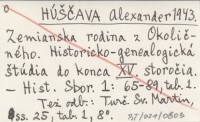 HÚŠČAVA Alexander 1943.
Zemianska rodina z Okolič-
ného. Historicko-genealogická
štúdia do konca XV. storočia.
- Hist. Sbor. 1: 65-89, tab 1.
Tež odb.: Turč. Sv. Martin,
ss. 25, tab 1, 8°.